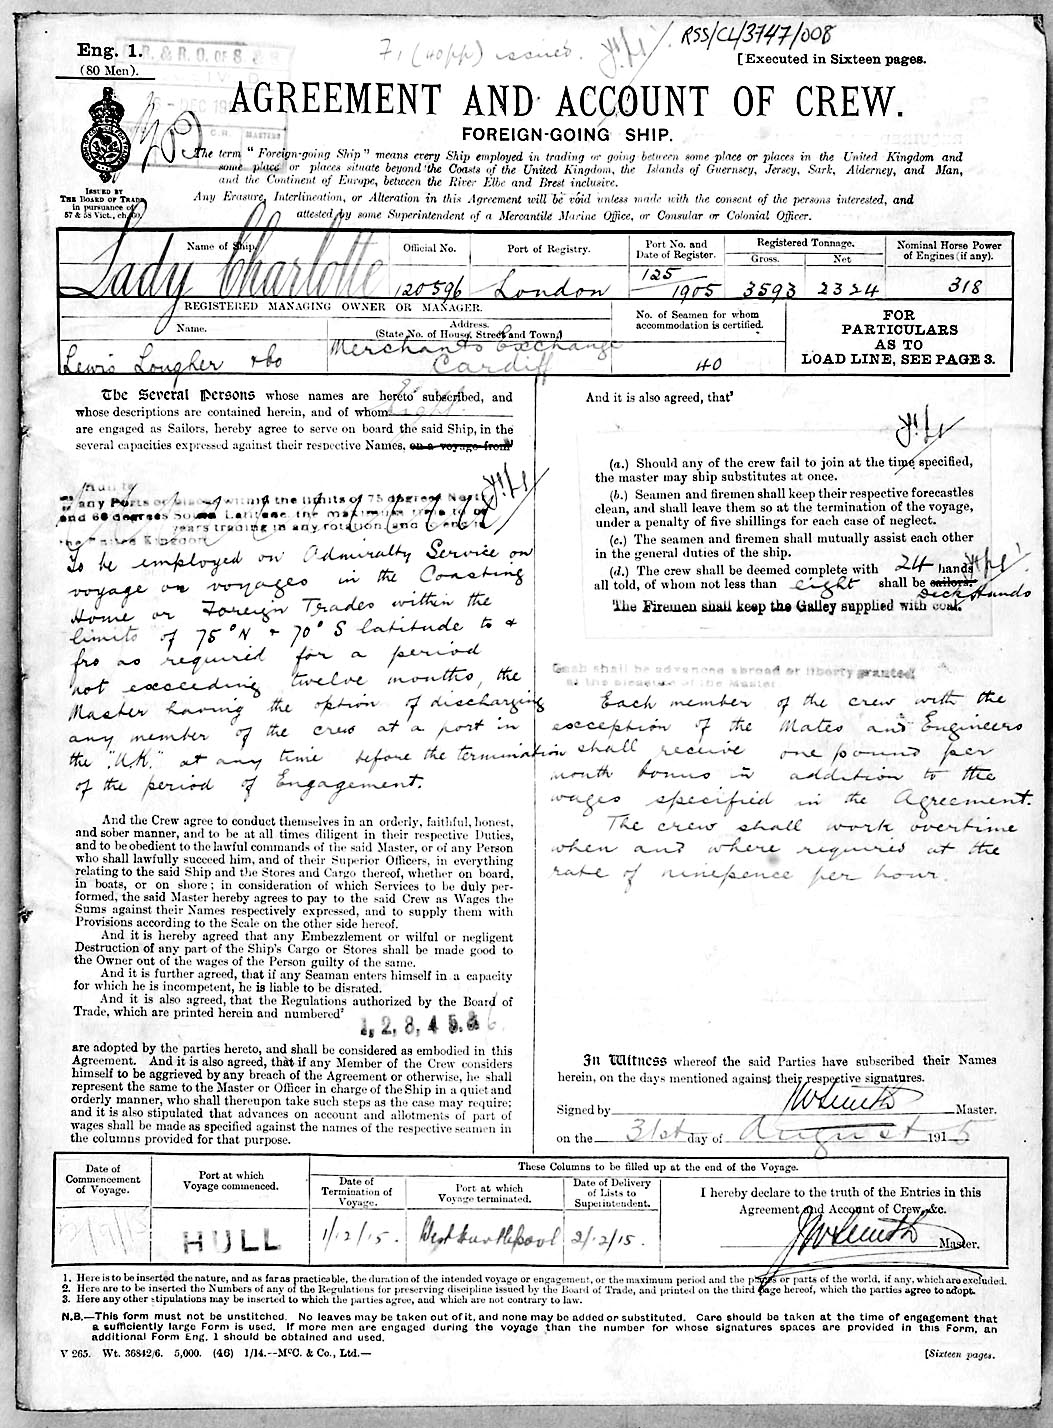 RSS/CL/3747/008
Eng. 1.
(80 Men).
F, (40pp) issued.
[Executed in Sixteen pages.
AGREEMENT AND ACCOUNT OF CREW.
FOREIGN-GOING SHIP.
The term "Foreign-going Ship" means every Ship employed in trading or going between some place or places in the United Kingdom and
some place or places situate beyond the Coasts of the United Kingdom, the Islands of Guernsey, Jersey, Sark, Alderney, and Man,
and the Continent of Europe, between the River Elbe and Brest inclusive.
Any Erasure, Interlineation, or Alteration in this Agreement will be void unless made with the consent of the persons interested, and
attested by some Superintendent of a Mercantile Marine Office, or Consular or Colonial Officer.
ISSUED BY
THE BOARD OF TRADE
in pursuance of
57 & 58 Vict., ch. 60.
Name of Ship.
Official No.
Port of Registry.
Port No. and
Date of Register.
Registered Tonnage.
Gross.
Net
Nominal Horse Power
of Engines (if any).
Lady Charlotte
120596
London
125
1905
3593
2324
318
REGISTERED MANAGING OWNER OR MANAGER.
Name.
Address.
(State No. of House, Street and Town.)
No. of Seamen for whom
accommodation is certified.
FOR
PARTICULARS
AS TO
LOAD LINE, SEE PAGE 3.
Lewis Lougher & Co
Merchants Exchange
Cardiff
40
The Several Persons whose names are hereto subscribed, and
whose descriptions are contained herein, and of whom
are engaged as Sailors, hereby agree to serve on board the said Ship, in the
several capacities expressed against their respective Names, on a voyage from
any Ports or places within the limits of 75 degrees North
and 60 degrees South Latitude, the maximum time to be
years trading in any rotation, and to end in
the United Kingdom
To be employed on Admiralty Service on
voyage or voyages in the Coasting
Home or Foreign Trades within the
limits of 75° N & 70° S latitude to &
fro as required for a period
not exceeding twelve months, the
Master having the option of discharging
any member of the crew at a port in
the "U.K." at any time before the termination
of the period of Engagement.
And the Crew agree to conduct themselves in an orderly, faithful, honest,
and sober manner, and to be at all times diligent in their respective Duties,
and to be obedient to the lawful commands of the said Master, or of any Person
who shall lawfully succeed him, and of their Superior Officers, in everything
relating to the said Ship and the Stores and Cargo thereof, whether on board,
in boats, or on shore; in consideration of which Services to be duly per-
formed, the said Master hereby agrees to pay to the said Crew as Wages the
Sums against their Names respectively expressed, and to supply them with
Provisions according to the Scale on the other side hereof.
And it is hereby agreed that any Embezzlement or wilful or negligent
Destruction of any part of the Ship's Cargo or Stores shall be made good to
the Owner out of the wages of the Person guilty of the same.
And it is further agreed, that if any Seaman enters himself in a capacity
for which he is incompetent, he is liable to be disrated.
And it is also agreed, that the Regulations authorized by the Board of
Trade, which are printed herein and numbered²
1, 2, 3, 4 5. 6
are adopted by the parties hereto, and shall be considered as embodied in this
Agreement. And it is also agreed, that if any Member of the Crew considers
himself to be aggrieved by any breach of the Agreement or otherwise, he shall
represent the same to the Master or Officer in charge of the Ship in a quiet and
orderly manner, who shall thereupon take such steps as the case may require;
and it is also stipulated that advances on account and allotments of part of
wages shall be made as specified against the names of the respective seamen in
the columns provided for that purpose.
And it is also agreed, that³
(a.) Should any of the crew fail to join at the time specified,
the master may ship substitutes at once.
(b.) Seamen and firemen shall keep their respective forecastles
clean, and shall leave them so at the termination of the voyage,
under a penalty of five shillings for each case of neglect.
(c.) The seamen and firemen shall mutually assist each other
in the general duties of the ship.
(d.) The crew shall be deemed complete with 24 hands
all told, of whom not less than eight shall be sailors.
Deck Hands
The Firemen shall keep the Galley supplied with coal.
Cash shall be advanced abroad or liberty granted
at the pleasure of the Master
Each member of the crew with the
exception of the Mates and Engineers
shall receive one pound per
month bonus in addition to the
wages specified in the Agreement.
The crew shall work overtime
when and where required at the
rate of ninepence per hour.
In Witness whereof the said Parties have subscribed their Names
herein, on the days mentioned against their respective signatures.
Signed by J W Smith Master.
on the 31st day of August 1915
Date of
Commencement
of Voyage.
Port at which
Voyage commenced.
These Columns to be filled up at the end of the Voyage.
Date of
Termination of
Voyage.
Port at which
Voyage terminated.
Date of Delivery
of Lists to
Superintendent.
I hereby declare to the truth of the Entries in this
Agreement and Account of Crew, &c.
HULL
1/12/15.
West Hartlepool
2/12/15.
J W Smith Master.
1. Here is to be inserted the nature, and as far as practicable, the duration of the intended voyage or engagement, or the maximum period and the places or parts of the world, if any, which are excluded.
2. Here are to be inserted the Numbers of any of the Regulations for preserving discipline issued by the Board of Trade, and printed on the third page hereof, which the parties agree to adopt.
3. Here any other stipulations may be inserted to which the parties agree, and which are not contrary to law.
N.B.—This form must not be unstitched. No leaves may be taken out of it, and none may be added or substituted. Care should be taken at the time of engagement that
a sufficiently large Form is used. If more men are engaged during the voyage than the number for whose signatures spaces are provided in this Form, an
additional Form Eng. 1 should be obtained and used.
V 265. Wt. 36842/6. 5,000. (46) 1/14.--McC. & Co., Ltd.—
[Sixteen pages.